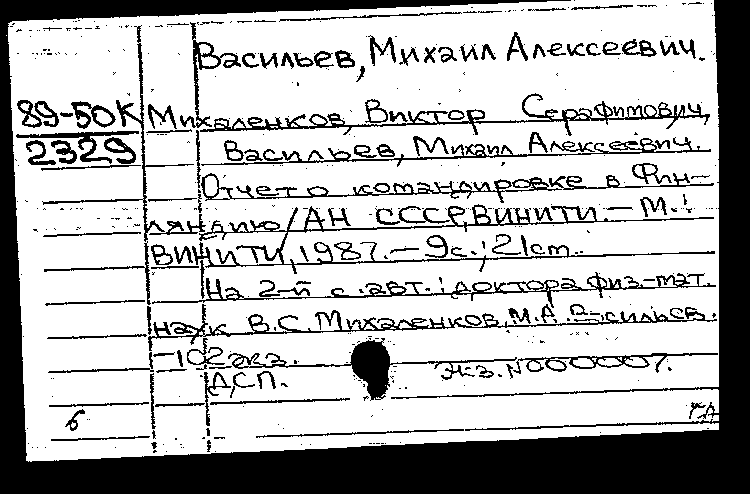 Васильев, Михаил Алексеевич.
89-50К Михаленков, Виктор Серафимович,
2329 Васильев, Михаил Алексеевич.
Отчет о командировке в Фин-
ляндию / АН СССР, ВИНИТИ. – М.:
ВИНИТИ, 1987. – 9с.; 21см.
На 2-й с. авт.: доктора физ.-мат.
наук В.С. Михаленков, М.А. Васильев.
– 102 экз.
ДСП. Экз. N000007.
б